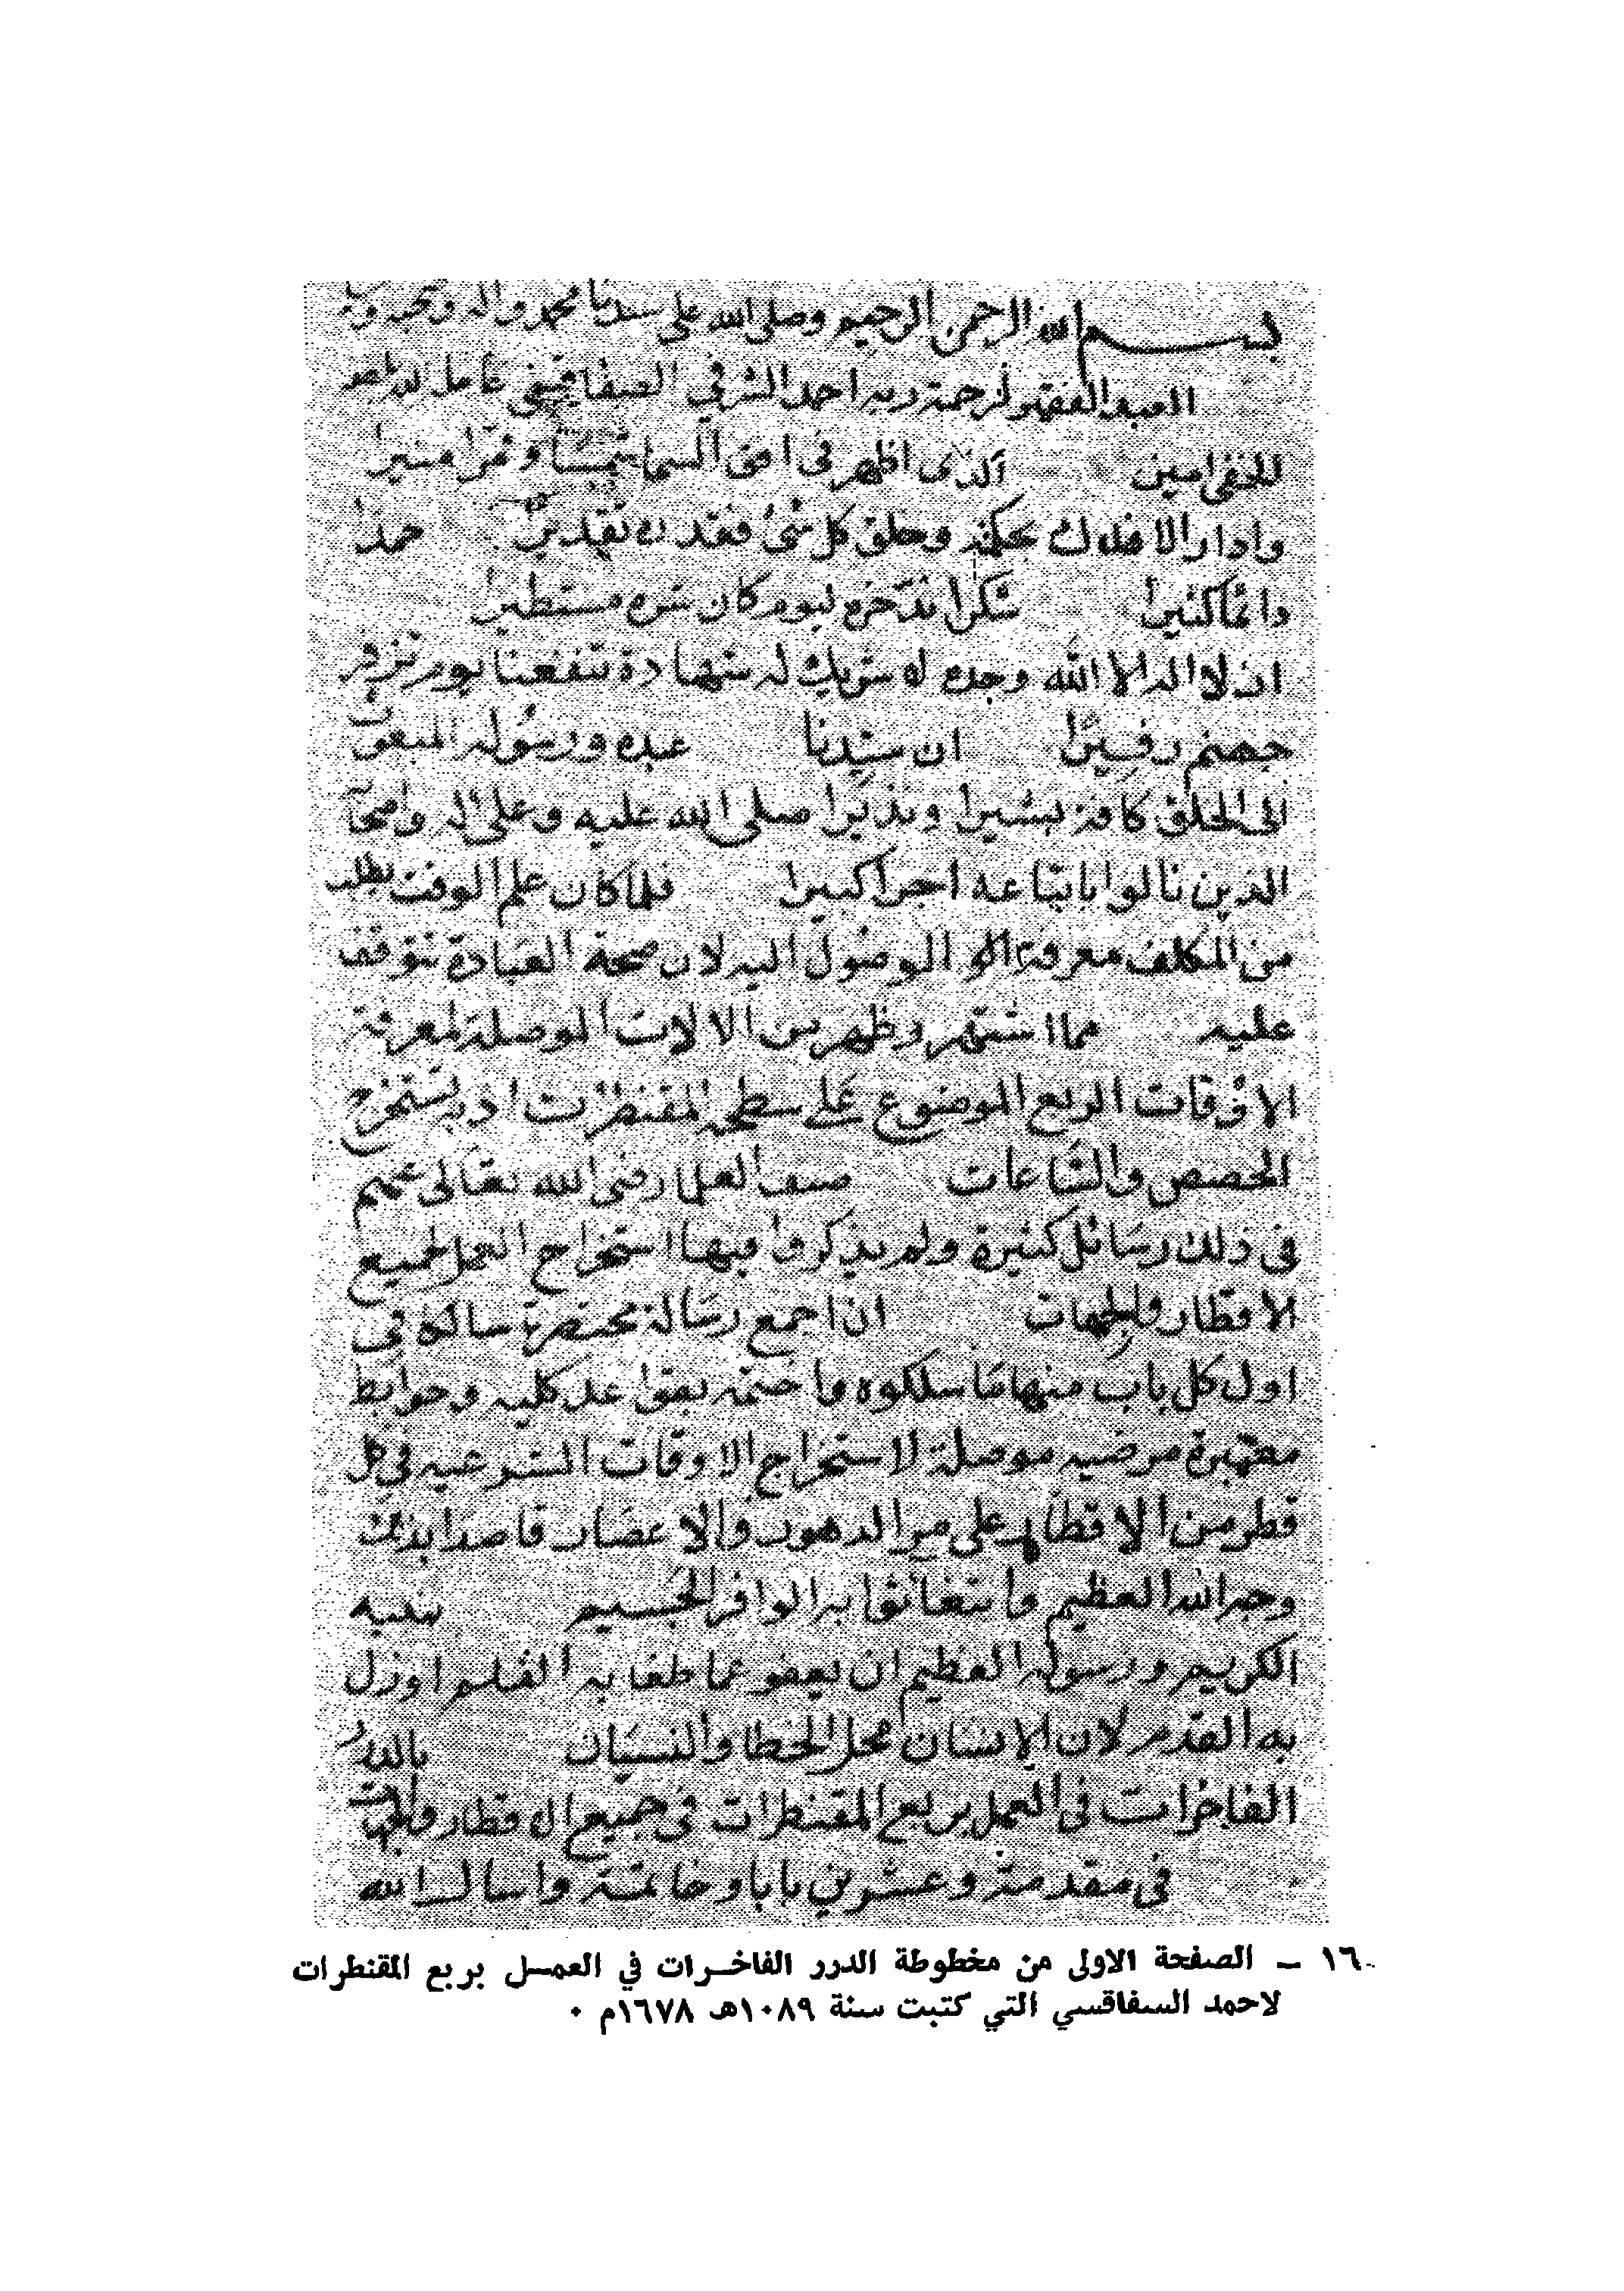 بسم الله الرحمن الرحيم وصلى الله على سيدنا محمد واله وصحبه
العبد الفقير لرحمة ربه احمد الشرفي الصفاقسي عامل الله
للخفي امين الذى اظهر فى افق السما شمسا وقمرا منيرا
وادار الافلاك بحكمته وخلق كل شئ فقدره تقديرا حمدا
دائما كثيرا شكرا ندخره ليوم كان شره مستطيرا
ان لا اله الا الله وحده لا شريك له شهادة تنفعنا يوم تزفر
جهنم زفيرا ان سيدنا عبده ورسوله المبعوث
الى الخلق كافة بشيرا ونذيرا صلى الله عليه وعلى اله واصحا
الذين نالوا باتباعه اجرا كبيرا فلما كان علم الوقت يطلب
من المكلف معرفة الوصول اليه لان صحة العبادة تتوقف
عليه مما اشتهر وظهر من الالات الموصلة لمعرفة
الاوقات الربع الموضوع على سطحه المقنطرات اذ به يستخرج
الحصص والساعات صنف العلما رضى الله تعالى عنهم
فى ذلك رسائل كثيرة ولم يذكروا فيها استخراج العمل لجميع
الاقطار والجهات ان اجمع رسالة مختصرة سالكا فى
اول كل باب منها ما سلكوه واختمه بقواعد كليه وضوابط
معتبرة مرضيه موصلة لاستخراج الاوقات الشرعيه فى كل
قطر من الاقطار على مر الدهور والاعصار قاصدا بذلك
وجه الله العظيم وابتغا ثوابه الوافر الجسيم بنبيه
الكريم ورسوله العظيم ان يعفو عما طغا به القلم او زل
به القدم لان الانسان محل الخطا والنسيان بالدرر
الفاخرات فى العمل بربع المقنطرات فى جميع الاقطار والجهات
فى مقدمة وعشرين بابا وخاتمة واسال الله
١٦ – الصفحة الاولى من مخطوطة الدرر الفاخرات في العمل بربع المقنطرات
لاحمد السفاقسي التي كتبت سنة ١٠٨٩هـ ١٦٧٨م .